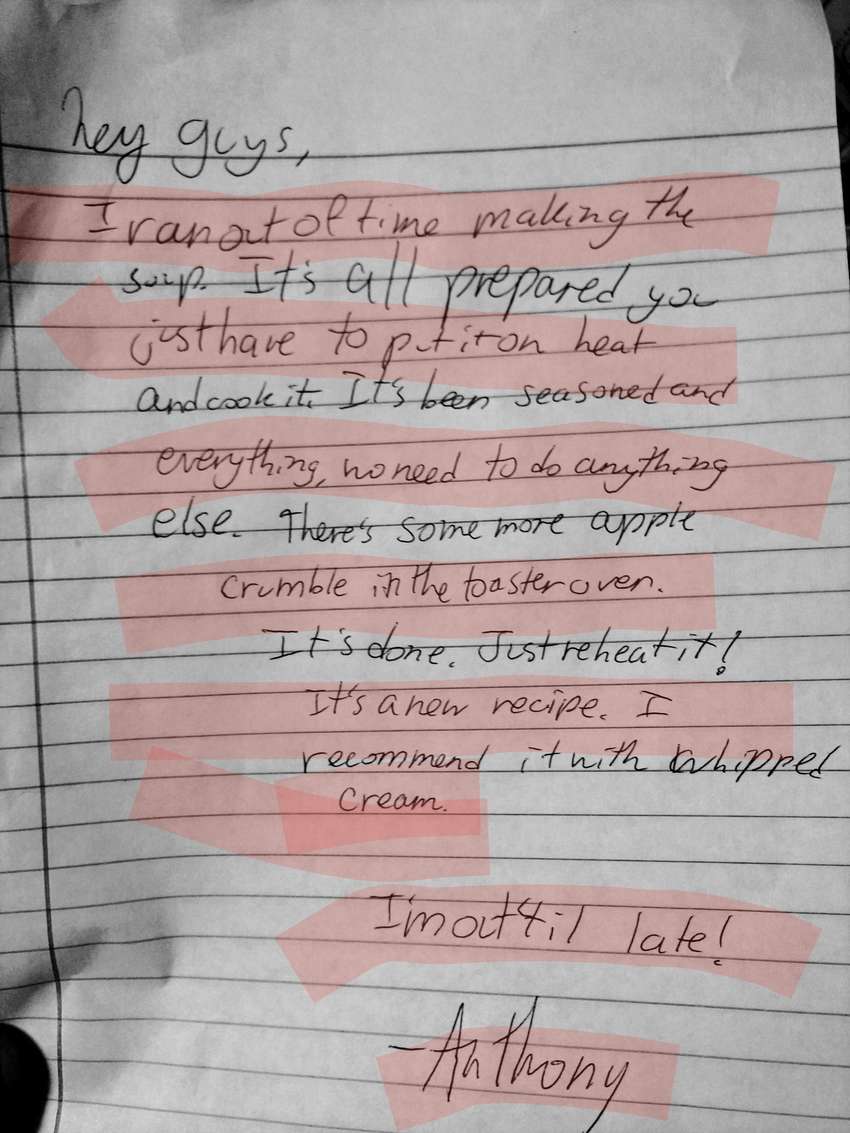 hey guys,
I ran out of time making the
soup. It's all prepared you
just have to put it on heat
and cook it. It's been seasoned and
everything, no need to do anything
else. There's some more apple
crumble in the toaster oven.
It's done. Just reheat it!
It's a new recipe. I
recommend it with whipped
cream.
I'm out 'til late!
-Anthony